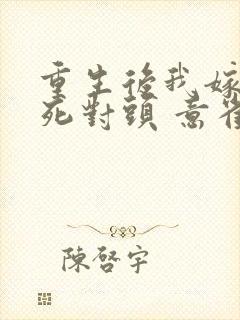 重生後我嫁
死對頭 意
陳啓宇